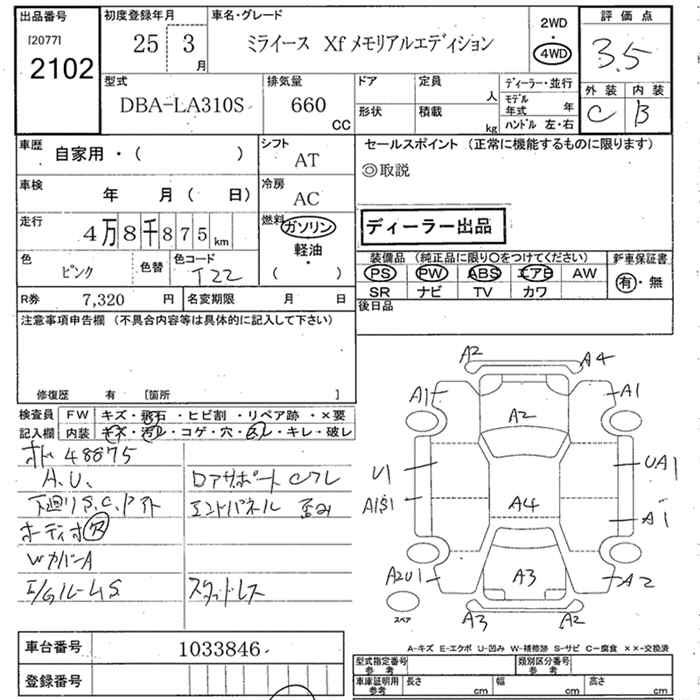 出品番号 初度登録年月 車名・グレード 2WD ・ 4WD 評価点
[2077] 2102 25 3月 ミライース Xf メモリアルエディション 3.5
型式 排気量 ドア 定員 人 ディーラー・並行 外装 内装
DBA-LA310S 660 CC 形状 積載 kg モデル年式 年 ハンドル 左・右 C B
車歴 自家用・( ) シフト AT セールスポイント (正常に機能するものに限ります)
◎取説
車検 年 月( 日) 冷房 AC
走行 4万8千875km 燃料 ガソリン 軽油 ・ ( ) ディーラー出品
色 ピンク 色替 色コード T22 装備品 (純正品に限り○をつけてください) 新車保証書
PS PW ABS エアB AW 有・無
SR ナビ TV カワ
R券 7,320 円 名変期限 月 日 後日品
注意事項申告欄 (不具合内容等は具体的に記入して下さい)
修復歴 有 [箇所 ]
検査員 FW キズ・飛石・ヒビ割・リペア跡・×要
記入欄 内装 キズ・汚レ・コゲ・穴・スレ・キレ・破レ
48875
A.U. ロアサポート
下廻りS.C. エンドパネル 歪み
オーディオ 欠
WカバーA
スタッドレス
A2 A4
A1 A2 A1
U1 UA1
A4 A1
A2U1 A3 A2
スペア A3 A2
A-キズ E-エクボ U-凹み W-補修跡 S-サビ C-腐食 ××-交換済
車台番号 1033846
登録番号
型式指定番号 参考 類別区分番号 参考
車庫証明用 参考 長さ cm 幅 cm 高さ cm